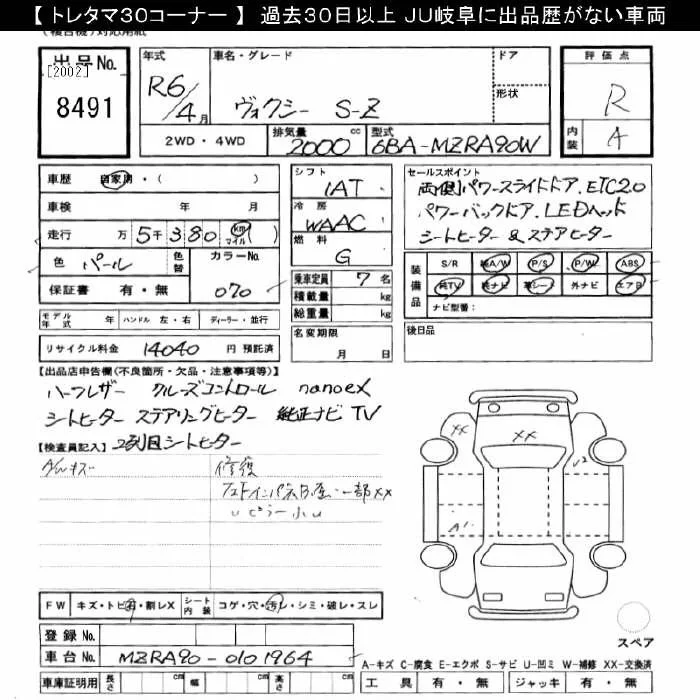 【 トレタマ30コーナー 】 過去30日以上 JU岐阜に出品歴がない車両
出品No.
[2002]
8491
年式 車名・グレード ドア
R6/4月 ヴォクシー S-Z 形状
2WD・4WD 排気量 2000 cc 型式 6BA-MZRA90W
評価点
R
内装 A
車歴 自家用・( )
車検 年 月
走行 万 5千380 km マイル )
色 パール 色替 カラーNo. 070
保証書 有・無
シフト
IAT
冷房
WAAC
燃料
G
乗車定員 7 名
積載量 kg
総重量 kg
名変期限
月 日
セールスポイント
両側パワースライドドア.ETC2.0
パワーバックドア.LEDヘッド
シートヒーター & ステアヒーター
装備品 S/R 純A/W P/S P/W ABS
純TV 純ナビ 革シート 外ナビ エアB
ナビ型番:
後日品
モデル年式 年 ハンドル 左・右 ディーラー・並行
リサイクル料金 14040 円 預託済
【出品店申告欄(不良箇所・欠品・注意事項等)】
ハーフレザー クルーズコントロール nanoeX
シートヒーター ステアリングヒーター 純正ナビ TV
【検査員記入】 2列目シートヒーター
修復
一部XX
XX XX
A1
FW キズ・トビ石・割レX シート内装 コゲ・穴・汚レ・シミ・破レ・スレ
登録No.
車台No. MZRA90-0101964
車庫証明用 長さ cm 幅 cm 高さ cm
スペア
A-キズ C-腐食 E-エクボ S-サビ U-凹ミ W-補修 XX-交換済
工具 有・無 ジャッキ 有・無